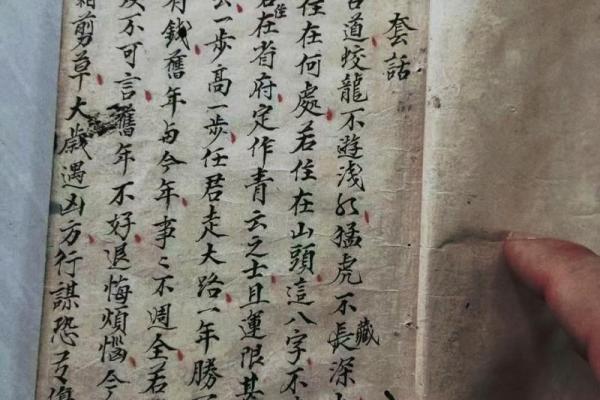 套話
古道蛟龍不遊浅水猛虎不長藏深
住在何處若住在山頭這八字不
若住在省府定作青云之士且運限甚
一步高一步任君走大路一年勝
有錢舊年与今年事〻不週全若
及不可言舊年不好退悔煩惱今
剪草大歲遇凶方行謀恐